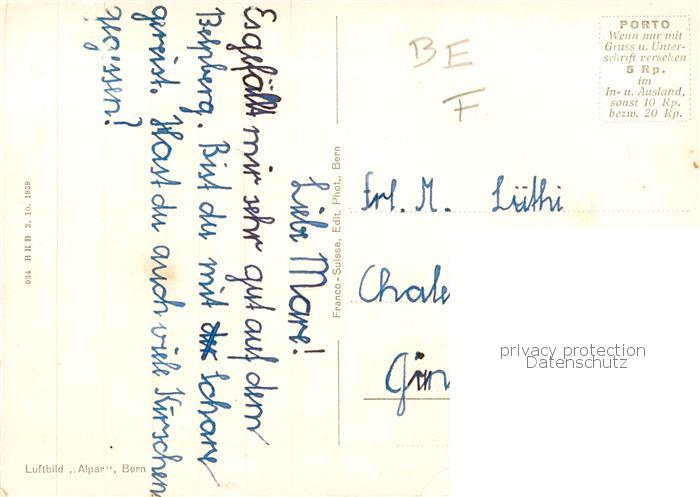 Liebe Mare!
Es gefällt mir sehr gut auf dem
Belpberg. Bist du mit
gereist. Hast du auch viele Kirschen
gegessen?
BE
F
PORTO
Wenn nur mit
Gruss u. Unter-
schrift versehen
5 Rp.
im
In- u. Ausland,
sonst 10 Rp.
bezw. 20 Rp.
Frl. M. Lüthi
Chale
privacy protection
Datenschutz
Franco-Suisse, Edit. Phot., Bern
934 BRB 3. 10. 1939
Luftbild „Alpar“, Bern